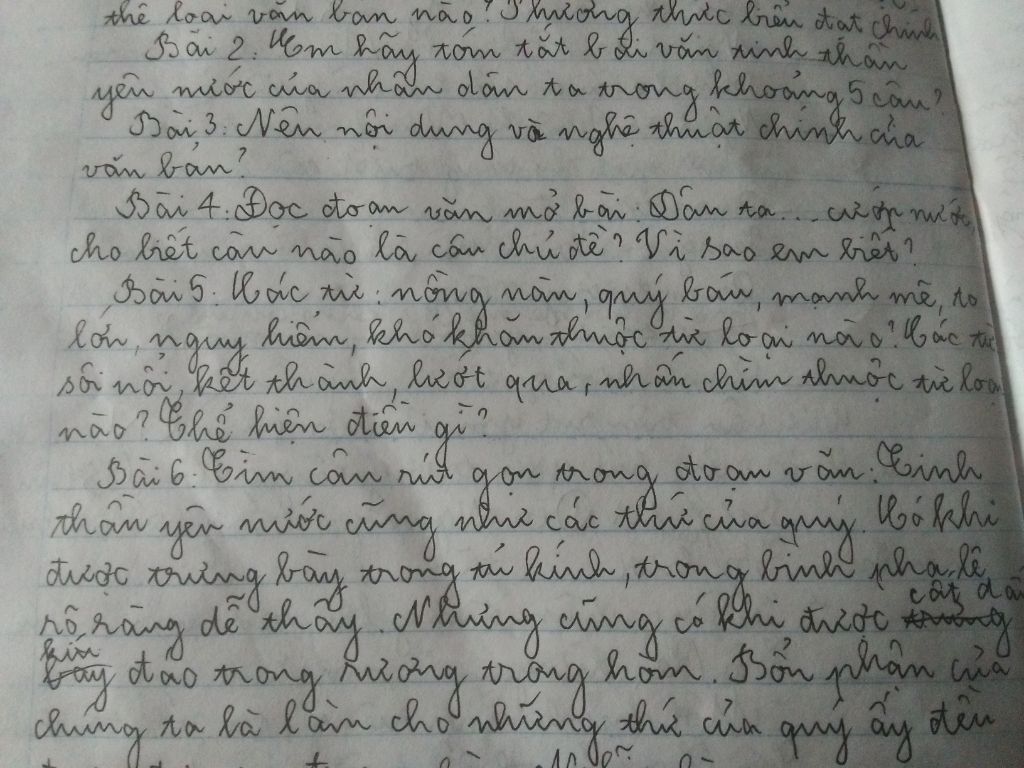 thể loại văn bản nào? Phương thức biểu đạt chính
Bài 2: Em hãy tóm tắt bài văn tinh thần
yêu nước của nhân dân ta trong khoảng 5 câu?
Bài 3: Nêu nội dung và nghệ thuật chính của
văn bản?
Bài 4: Đọc đoạn văn mở bài: Dân ta... cướp nước
cho biết câu nào là câu chủ đề? Vì sao em biết?
Bài 5: Các từ: nồng nàn, quý báu, mạnh mẽ, to
lớn, nguy hiểm, khó khăn thuộc từ loại nào? Các từ
sôi nổi, kết thành, lướt qua, nhấn chìm thuộc từ loại
nào? Thể hiện điều gì?
Bài 6: Tìm câu rút gọn trong đoạn văn: Tinh
thần yêu nước cũng như các thứ của quý. Có khi
được trưng bày trong tủ kính, trong bình pha lê
rõ ràng dễ thấy. Nhưng cũng có khi được cất dấu
kín đáo trong rương trong hòm. Bổn phận của
chúng ta là làm cho những thứ của quý ấy đều